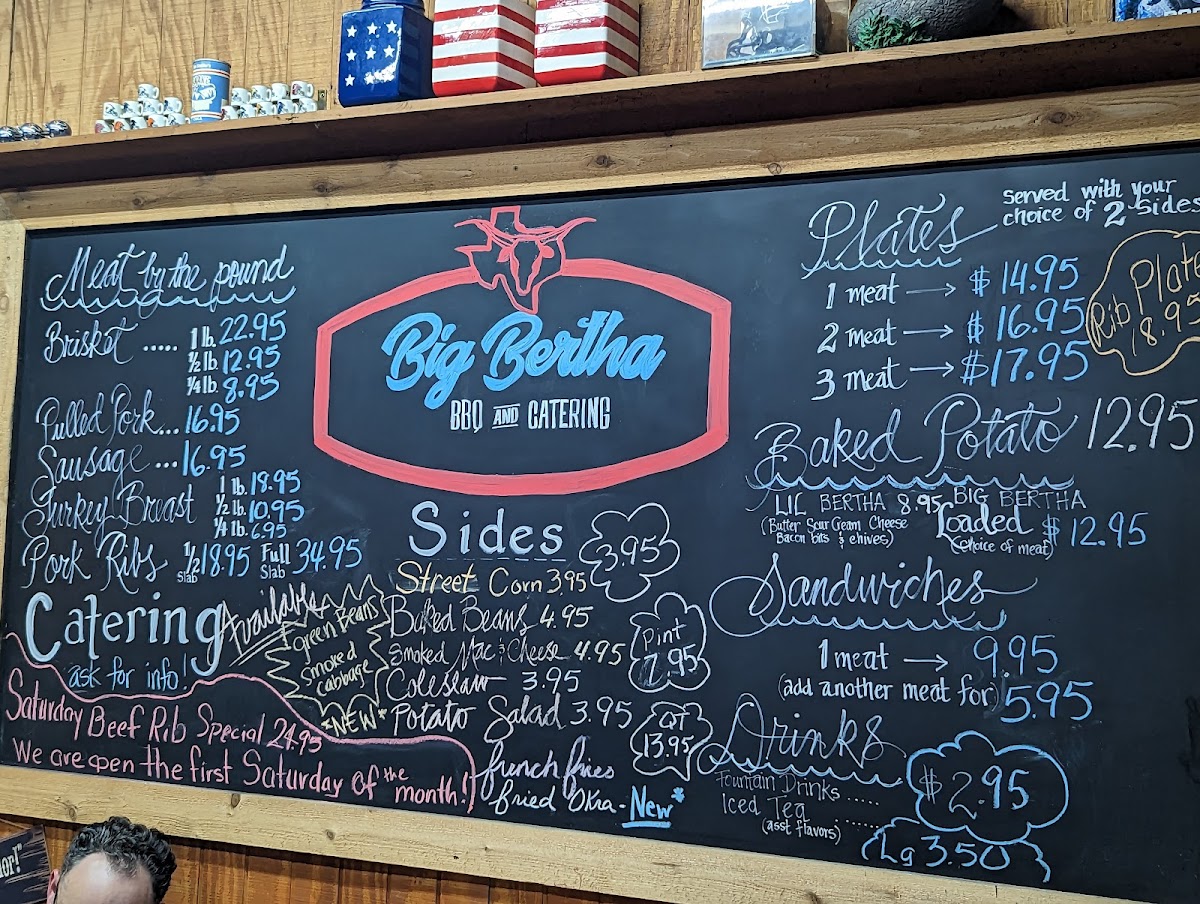 Meat by the pound
Brisket ..... 1 lb. 22.95
½ lb. 12.95
¼ lb 8.95
Pulled Pork... 16.95
Sausage ... 16.95
Turkey Breast 1 lb. 18.95
½ lb. 10.95
¼ lb. 6.95
Pork Ribs ½ slab 18.95 Full Slab 34.95
Catering Available
ask for info!
Saturday Beef Rib Special 24.95
We are open the first Saturday of the month!
Big Bertha
BBQ AND CATERING
Sides
3.95
Street Corn 3.95
Green Beans
Smoked Cabbage
Baked Beans 4.95
Smoked Mac & Cheese 4.95
Coleslaw 3.95
*NEW* Potato Salad 3.95
Pint 7.95
QT 13.95
french fries
fried Okra - New*
Plates
Served with your
choice of 2 sides
1 meat → $ 14.95
2 meat → $ 16.95
3 meat → $ 17.95
Rib Plate
18.95
Baked Potato 12.95
LIL BERTHA 8.95
(Butter Sour Cream Cheese
Bacon bits & chives)
BIG BERTHA
Loaded $ 12.95
(choice of meat)
Sandwiches
1 meat → 9.95
(add another meat for) 5.95
Drinks
Fountain Drinks .....
Iced Tea ......
(asst flavors)
$2.95
Lg 3.50